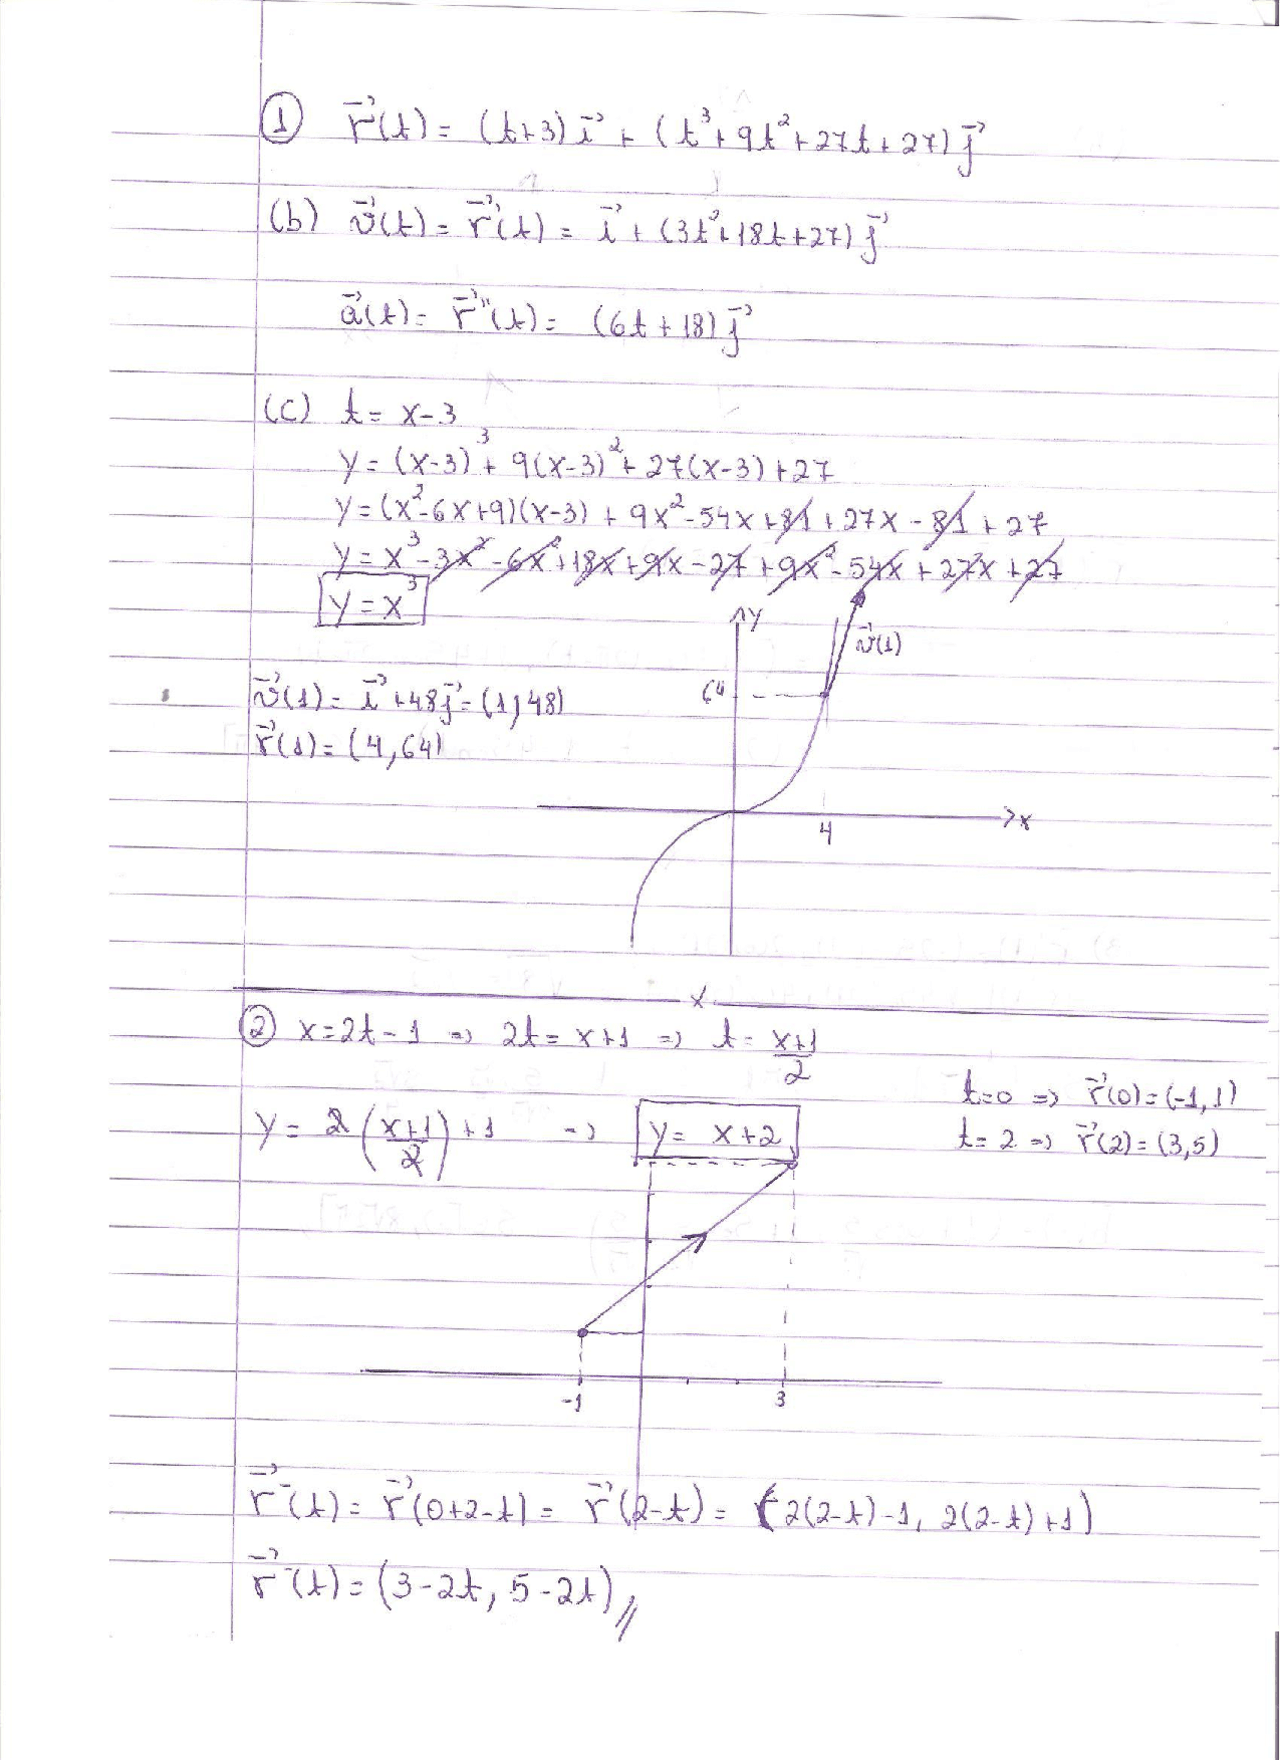 ① r⃗(t) = (t+3)i⃗ + (t³+9t²+27t+27)j⃗
(b) v⃗(t) = r⃗'(t) = i⃗ + (3t²+18t+27)j⃗
a⃗(t) = r⃗''(t) = (6t+18)j⃗
(c) t = x-3
y = (x-3)³ + 9(x-3)² + 27(x-3) + 27
y = (x²-6x+9)(x-3) + 9x²-54x+81+27x-81+27
y = x³-3x²-6x²+18x+9x-27+9x²-54x+27x+27
y = x³
y
v⃗(1)
64
v⃗(1) = i⃗+48j⃗ = (1,48)
r⃗(1) = (4,64)
x
4
x
② x=2t-1 ⇒ 2t = x+1 ⇒ t = (x+1)/2
t=0 ⇒ r⃗(0)=(-1,1)
y = 2((x+1)/2)+1 ⇒ y = x+2
t=2 ⇒ r⃗(2)=(3,5)
-1 3
r⃗⁻(t) = r⃗(0+2-t) = r⃗(2-t) = (2(2-t)-1, 2(2-t)+1)
r⃗⁻(t) = (3-2t, 5-2t)//